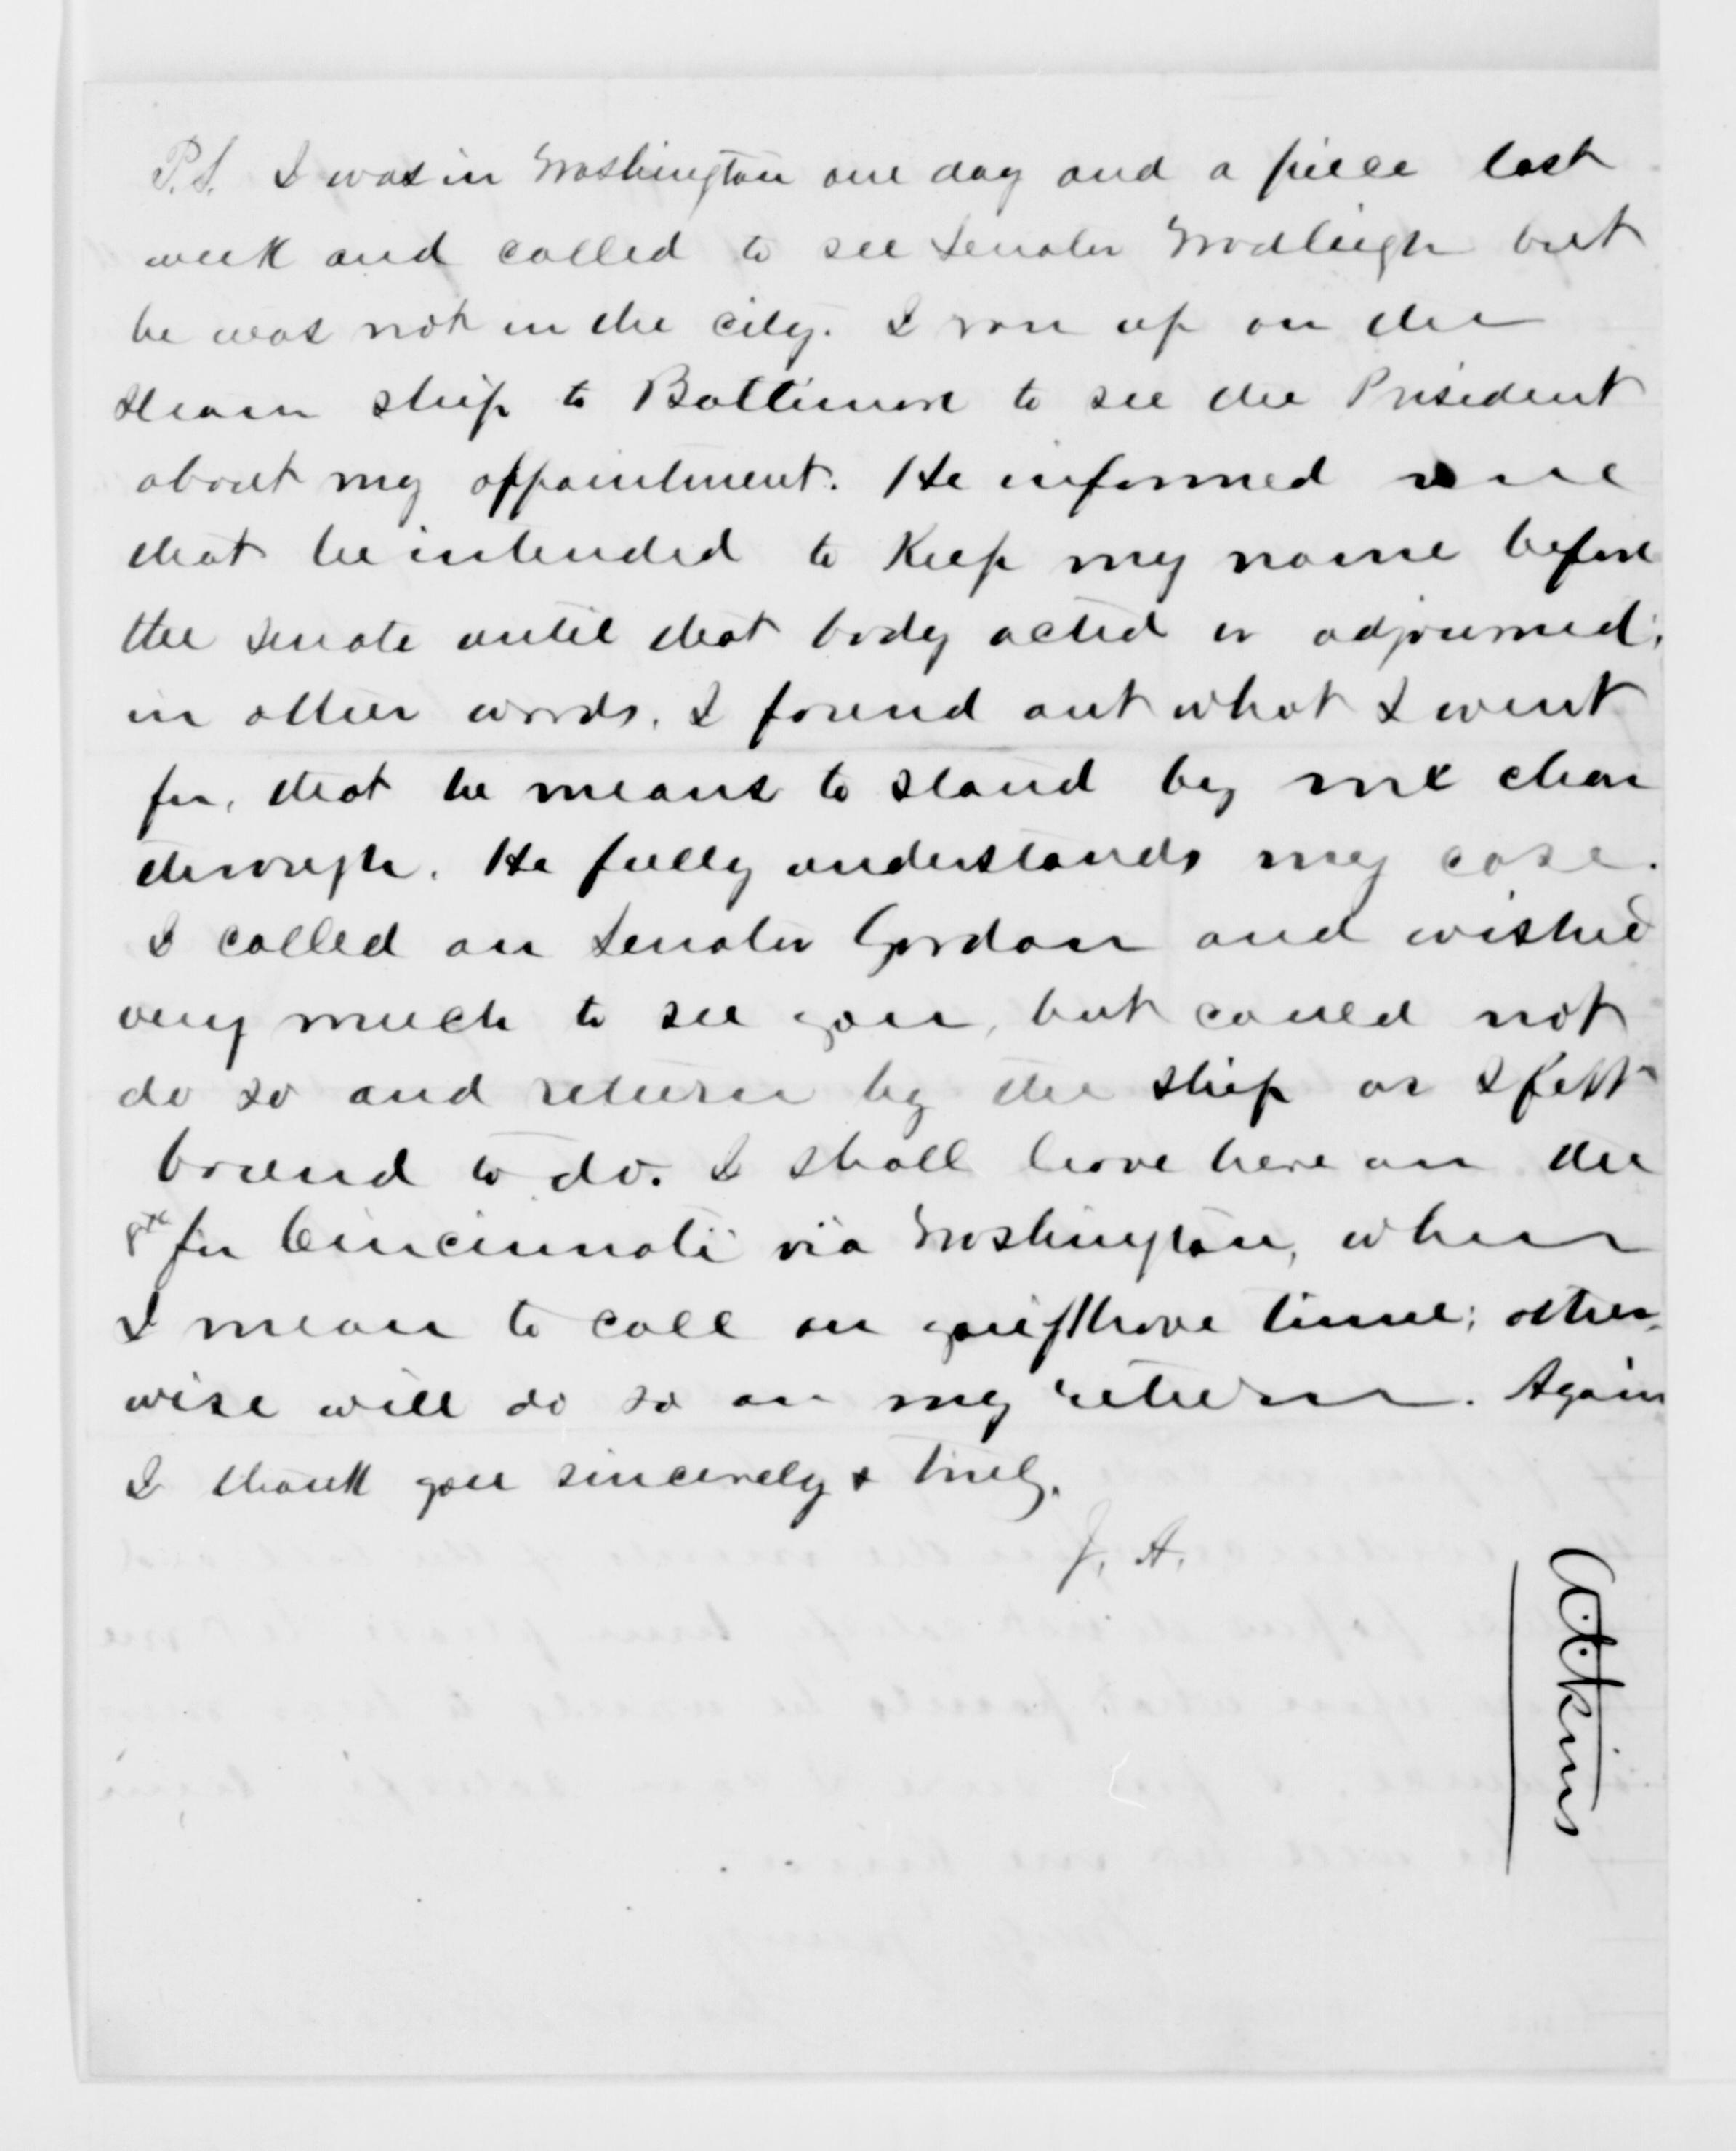 P.S. I was in Washington one day and a piece last
week and called to see Senator Wadleigh but
he was not in the city. I ran up on the
steam ship to Baltimore to see the President
about my appointment. He informed me
that he intended to Keep my name before
the senate until that body acted or adjourned;
in other words, I found out what I went
for, that he means to stand by me clear
through. He fully understands my case.
I called on Senator Gordon and wished
very much to see you, but could not
do so and return by the ship as I felt
bound to do. I shall leave here on the
8th for Cincinnati via Washington, when
I mean to call on you if I have time; other-
wise will do so on my return. Again
I thank you sincerely & truly.
J. A.
Atkins